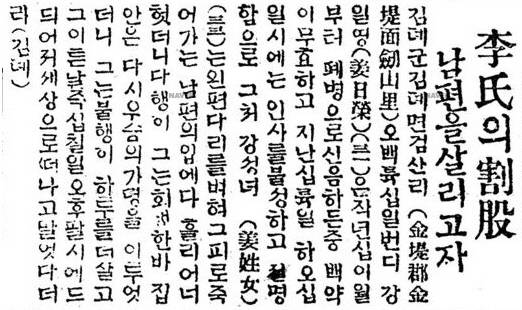 李氏의割股
남편을살리고자
김뎨군김뎨면검산리 (金堤郡金
堤面劒山里)오백륙십일번디 강
일영(姜日榮)(三一)은작년십이월
부터 폐병으로신음하든중 백약
이무효하고 지난십륙일 하오십
일시에는 인사를불성하고 절명
함으로 그처 강성녀 (姜姓女)
는왼편다리를버혀 그피로죽
어가는 남편의입에다 흘리어너
헛더니다행이 그는회생한바 집
안은 다시우슴의가뎡을 이루엇
더니 그는불행이 하두를더살고
그이튼날즉십칠일오후팔시에드
듸어저세상으로떠나고말엇다더
라(김뎨)